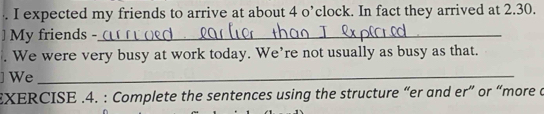 . I expected my friends to arrive at about 4 o'clock. In fact they arrived at 2.30.
] My friends - arrived earlier than I expected
. We were very busy at work today. We're not usually as busy as that.
] We
EXERCISE .4. : Complete the sentences using the structure "er and er" or "more